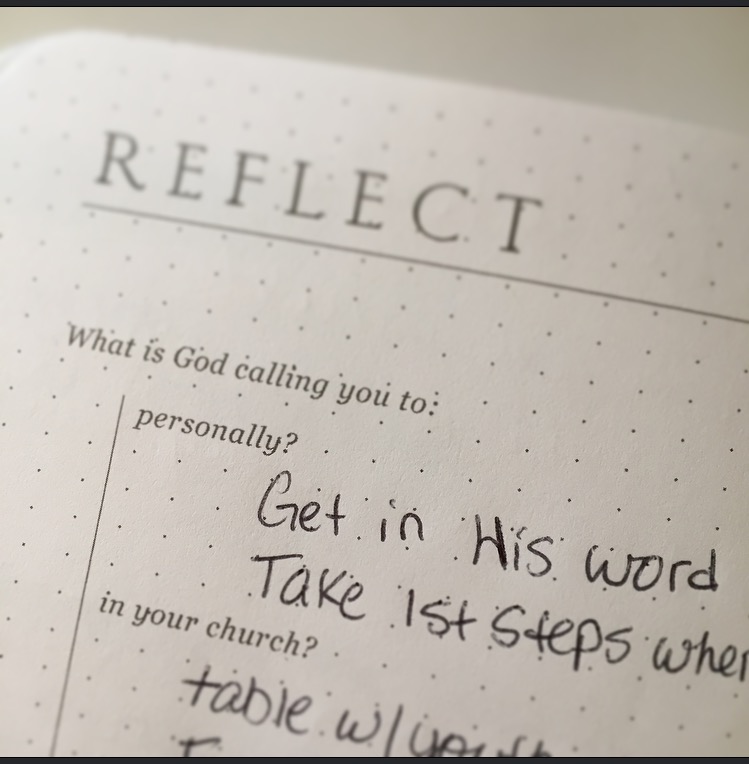 REFLECT
What is God calling you to:
personally?
Get in His word
Take 1st steps
in your church?
table w/